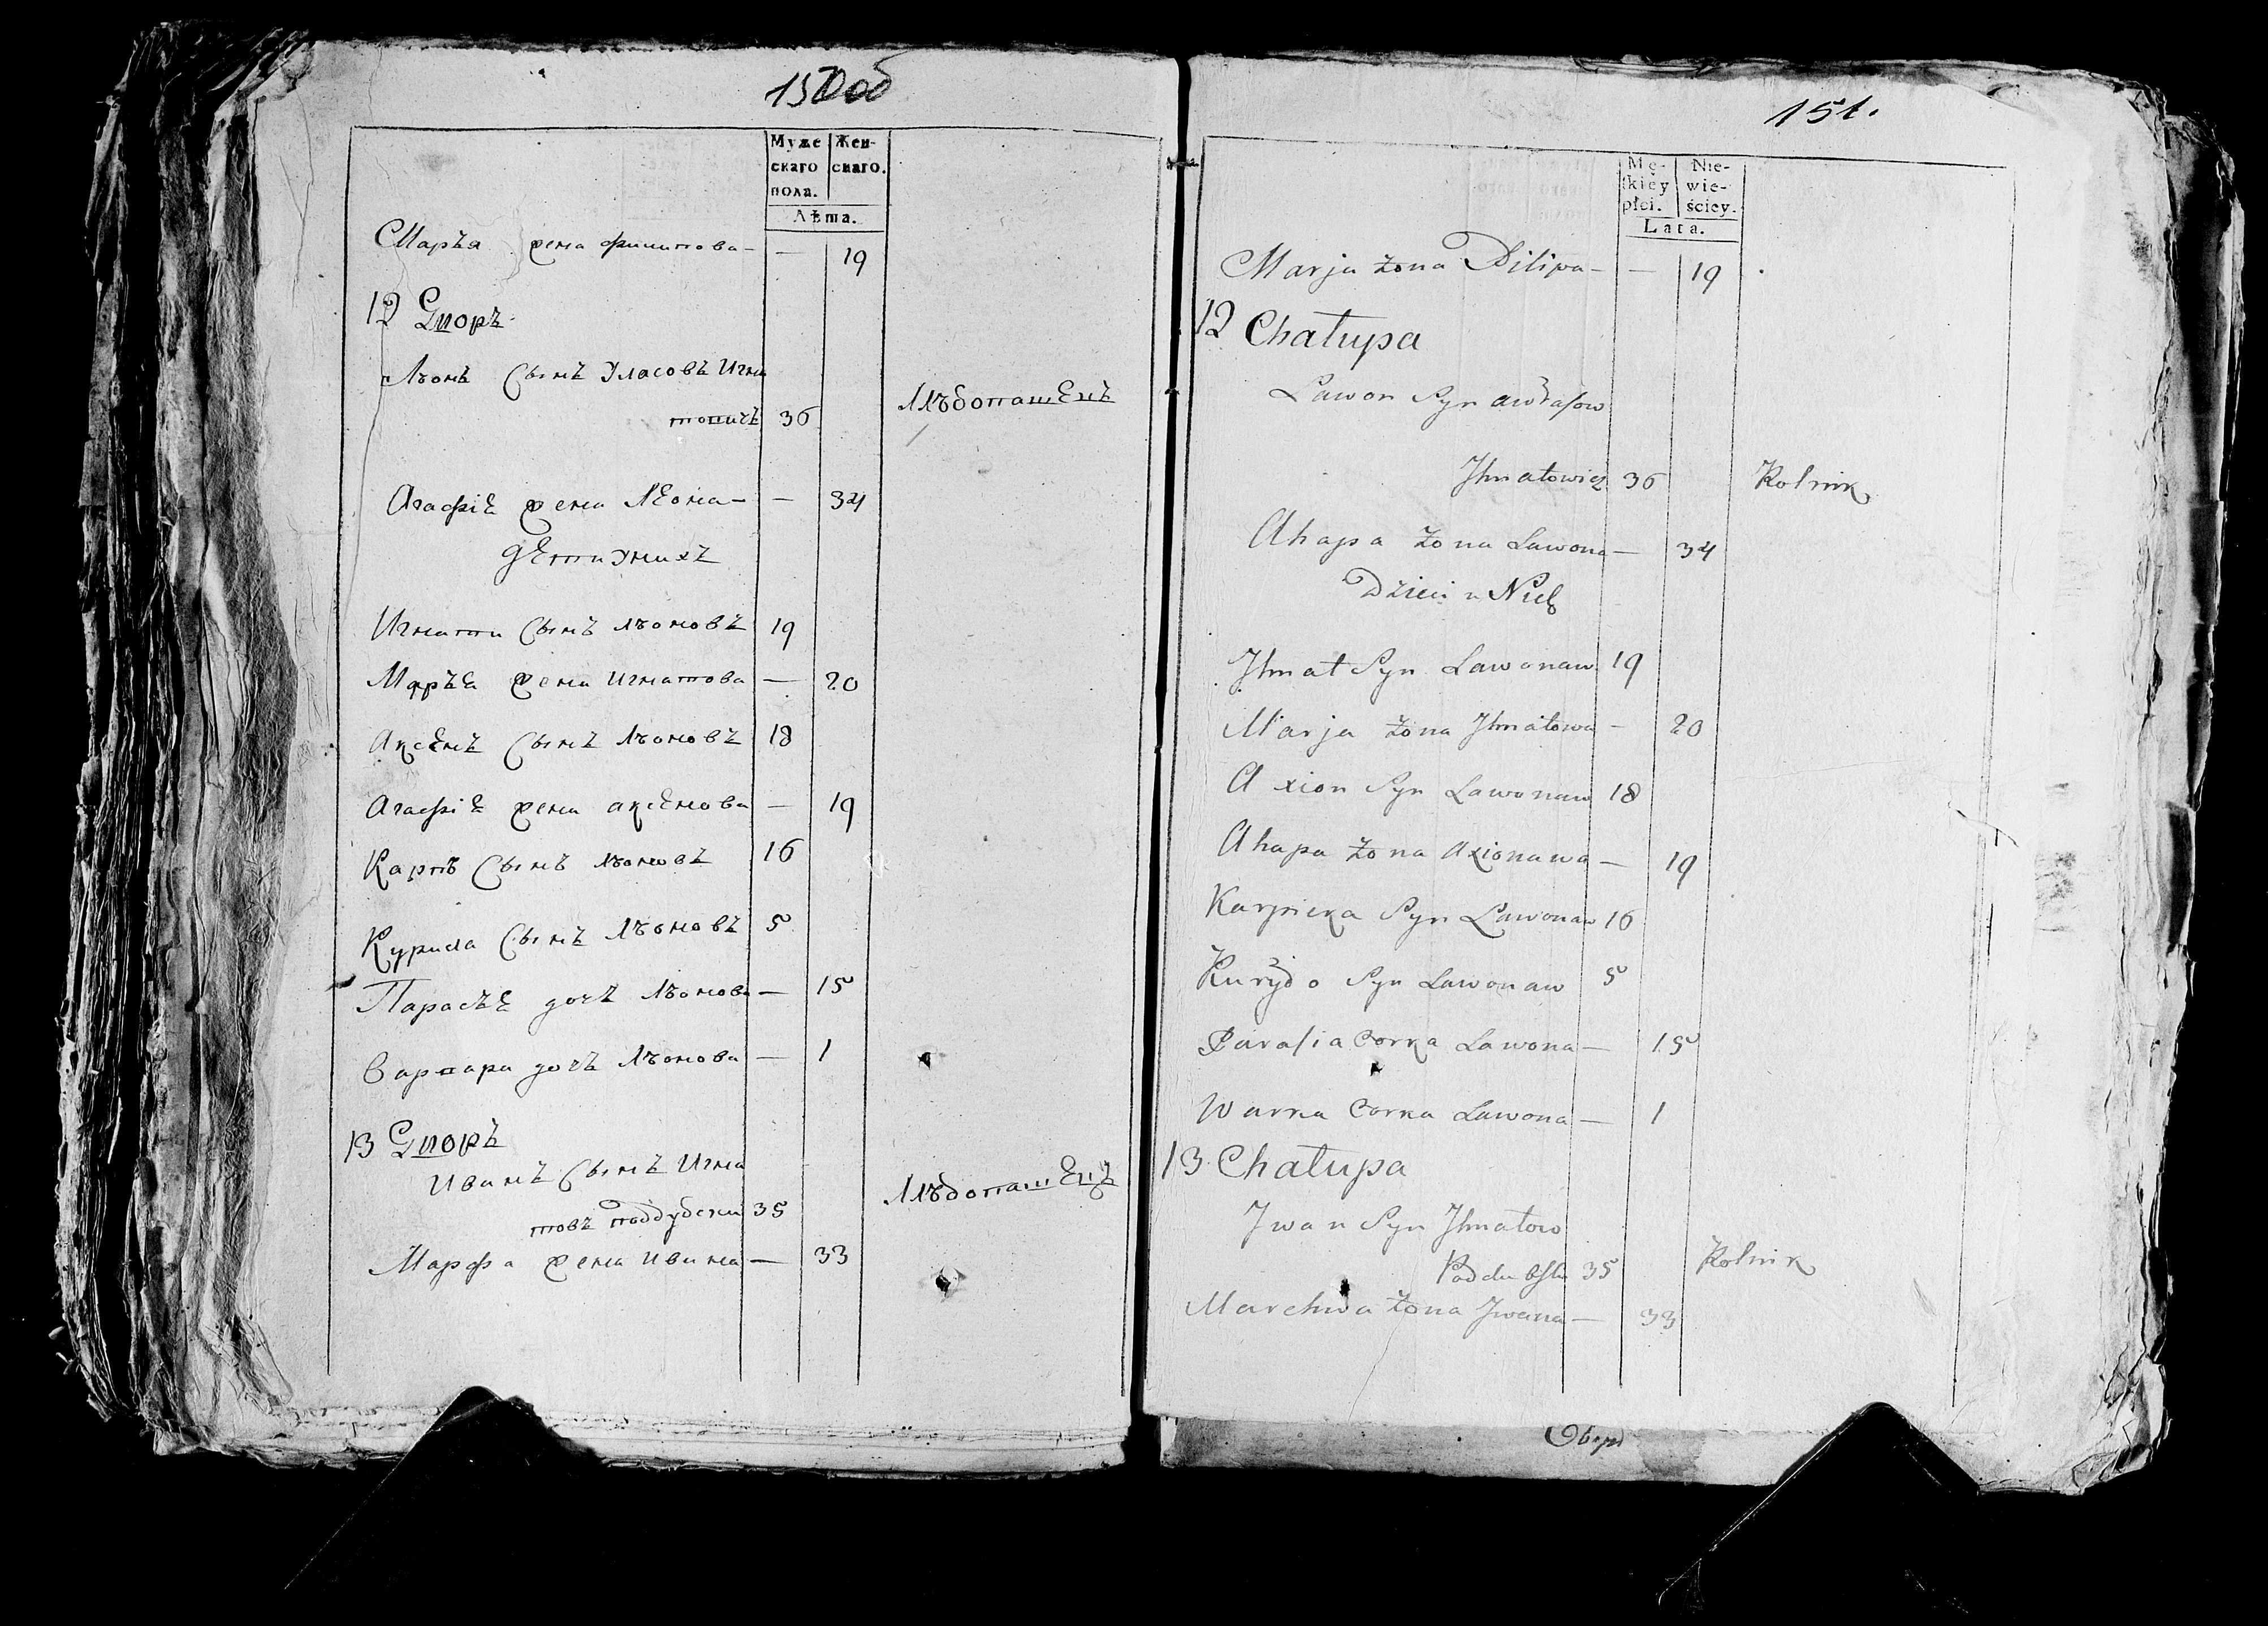 150 об
Муже
скаго
пола.
Жен-
скаго.
Лѣта.
Маръя жена филипова — — 19
12 Дворъ
Лъонъ Сынъ Уласовъ Игна
товичъ 36 Хлѣбопашецъ
Агафіе жена Леона — — 34
дети Унихъ
Игнати Сынъ Лъоновъ 19
Маръя жена Игнатова — 20
Аксенъ Сынъ Лъоновъ 18
Агафіе жена аксенова — 19
Карпъ Сынъ Лъоновъ 16
Курила Сынъ Лъоновъ 5
Парасъе дочъ Лъонова — 15
Варвара дочъ Лъонова — 1
13 Дворъ
Иванъ Сынъ Игна
товъ поддубски 35 Хлѣбопашецъ
Марфа жена Ивана — 33
151.
Mę-
skiey
płci.
Nie-
wie-
ściey.
Lata.
Marja żona Filipa — — 19
12 Chałupa
Lawon Syn awłasow
Jhnatowicz 36 Rolnik
Ahapa żona Lawona — 34
Dzieci u Nich
Jhnat Syn Lawonaw 19
Marja żona Jhnatowa — 20
Axion Syn Lawonaw 18
Ahapa żona Axionawa — 19
Karpieka Syn Lawonaw 16
Kuryło Syn Lawonaw 5
Parasia Corka Lawona — 15
Warka Corka Lawona — 1
13 Chałupa
Jwan Syn Jhnatow
Poddubski 35 Rolnik
Marchwa żona Jwana — 33